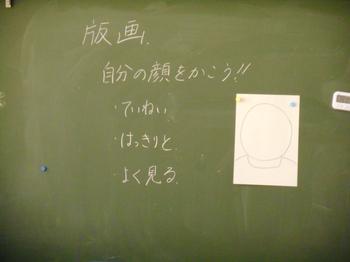 版画.
自分の顔をかこう!!
・ていねい
・はっきりと.
・よく見る.